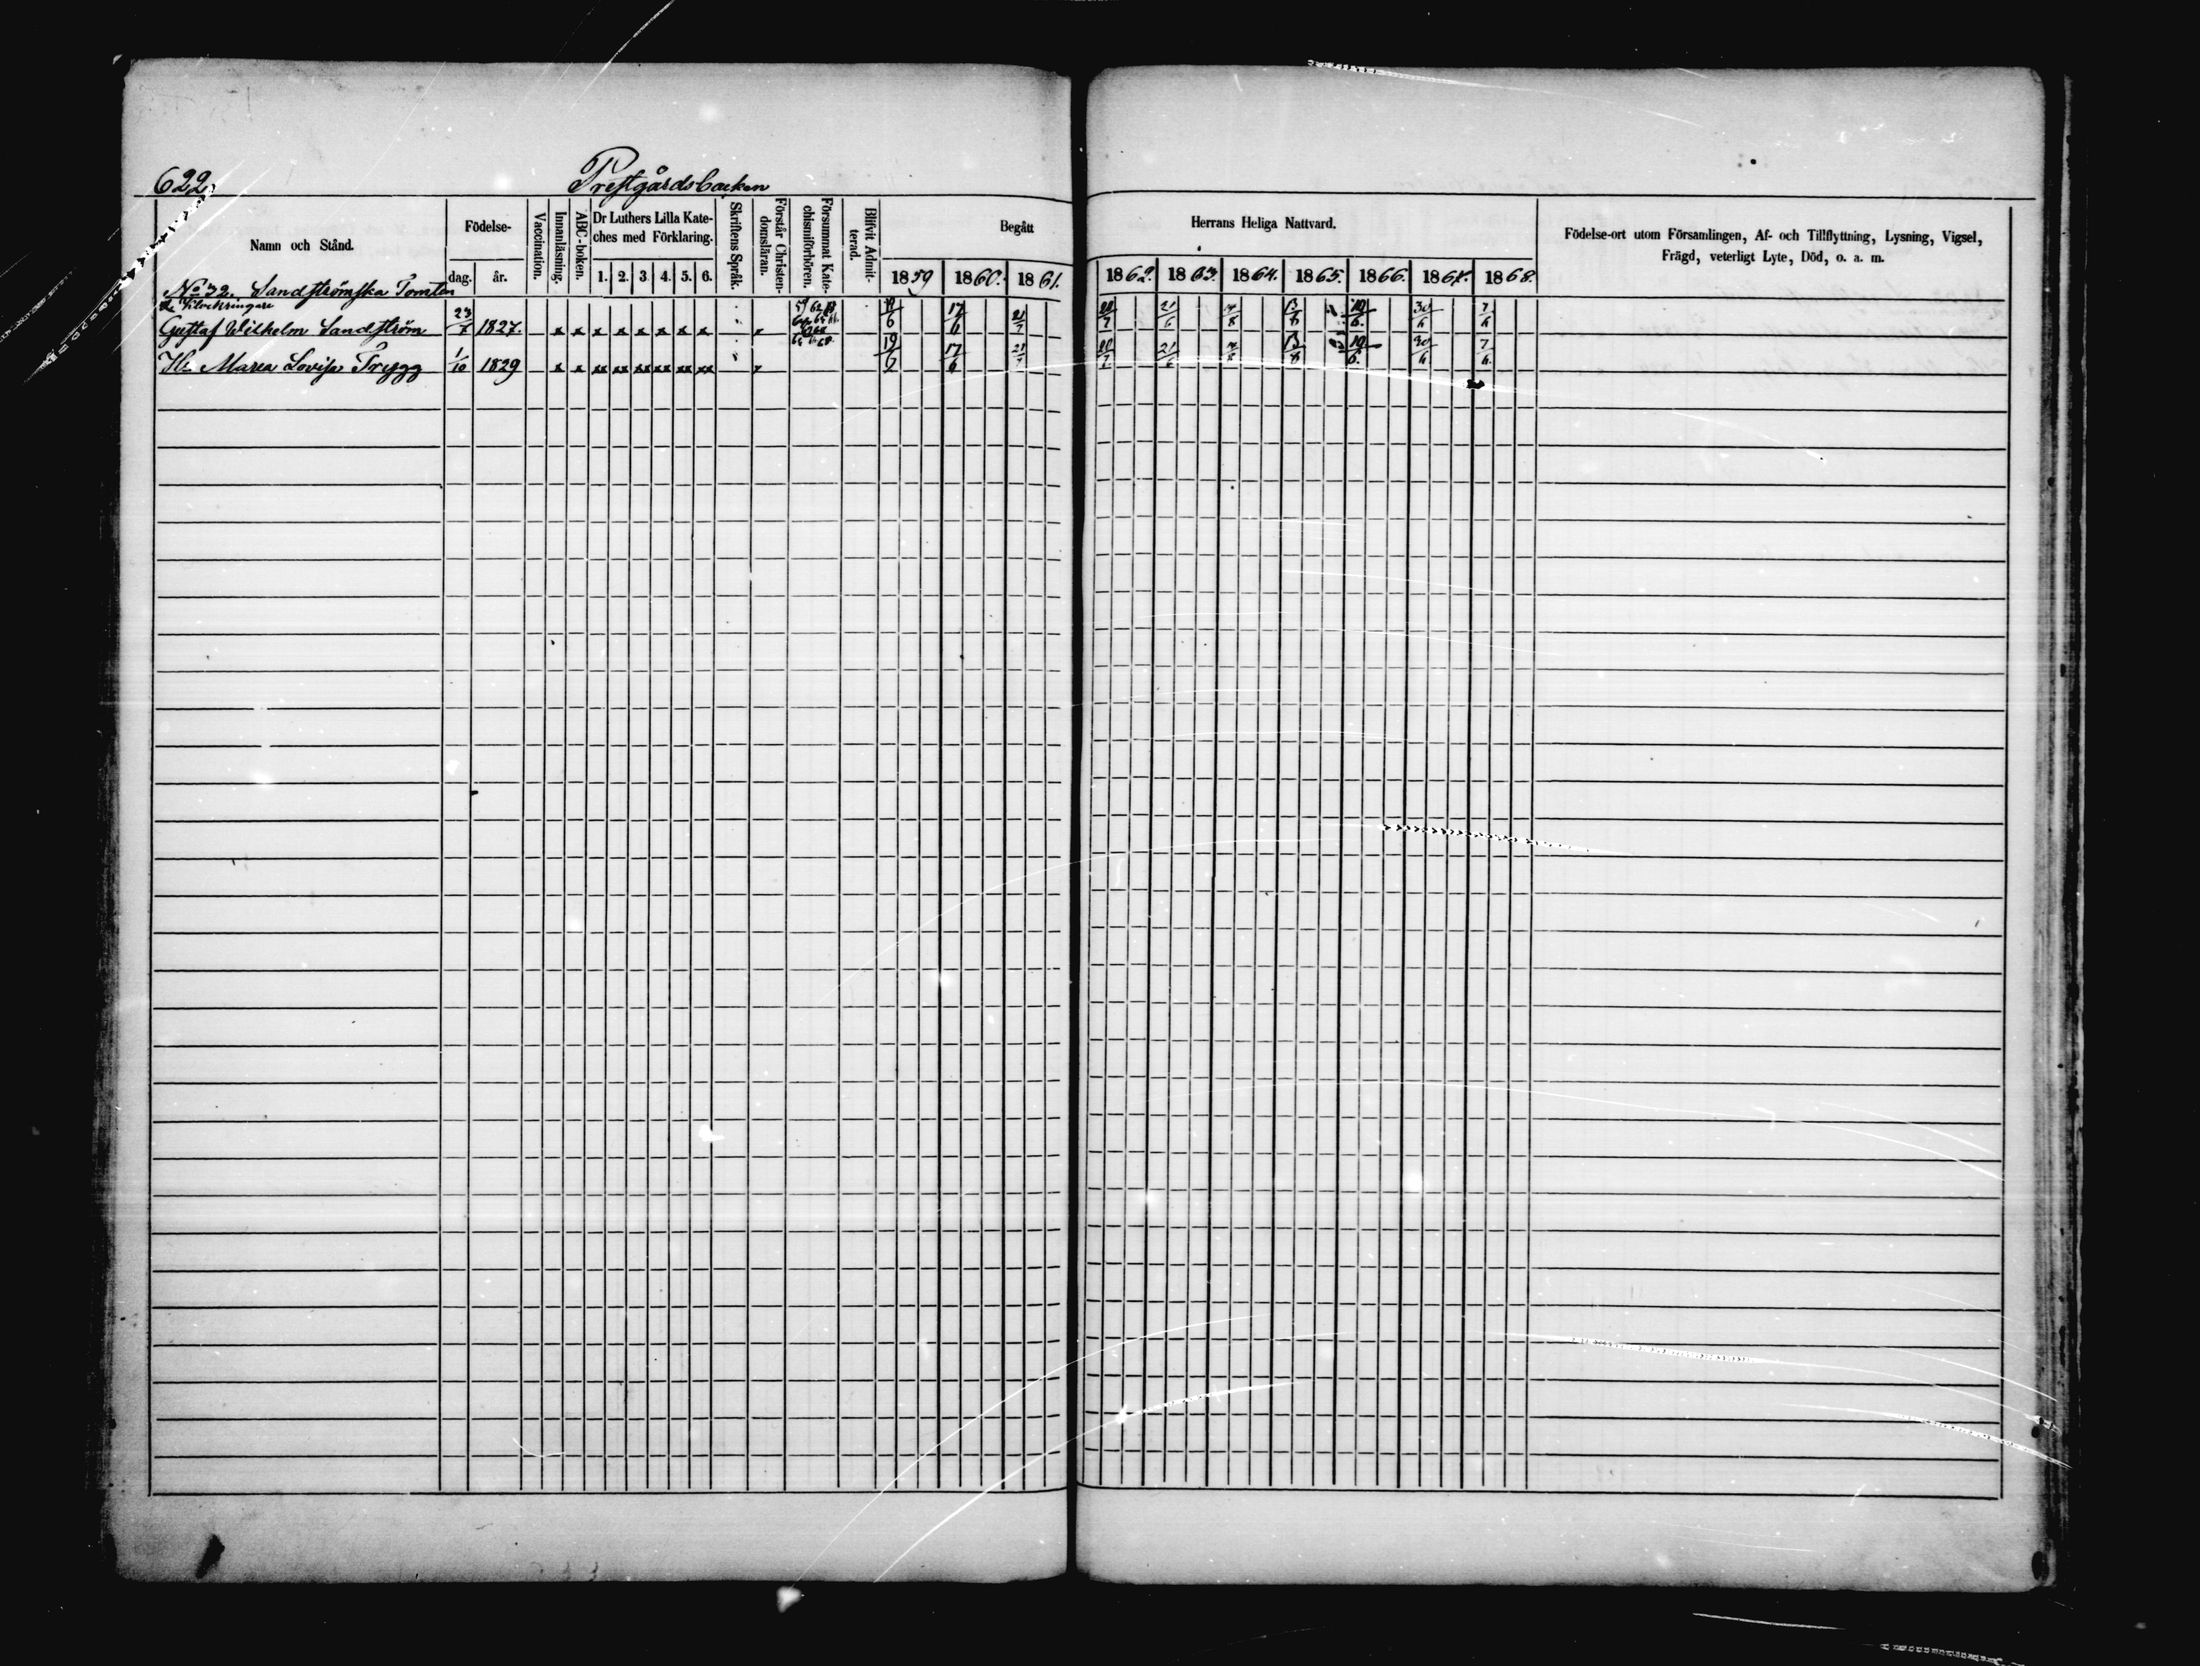 622.
Prestgårdsbacken
Namn och Stånd.
Födelse-
dag.
år.
Vaccination.
Innanläsning.
ABC-boken.
Dr Luthers Lilla Kate-
ches med Förklaring.
1. 2. 3. 4. 5. 6.
Skriftens Språk.
Förstår Christen-
domsläran.
Försummat Kate-
chismiförhören.
Blifvit Admit-
terad.
Begått
Herrans Heliga Nattvard.
1859 1860. 1861. 1862. 1863. 1864. 1865. 1866. 1867. 1868.
Födelse-ort utom Församlingen, Af- och Tillflyttning, Lysning, Vigsel,
Frägd, veterligt Lyte, Död, o. a. m.
No 32. Sandströmska Tomten
Klockringare
Gustaf Wilhelm Sandström 23/7 1827. x x x x x x x x 19/6 17/6 21/7 20/7 21/6 7/8 13/8 10/6. 30/6 7/6
H. Maria Lovisa Trygg 1/10 1829 x x xx xx xx xx xx xx 19/6 17/6 21/7 20/7 21/6 7/8 13/8 10/6. 30/6 7/6.